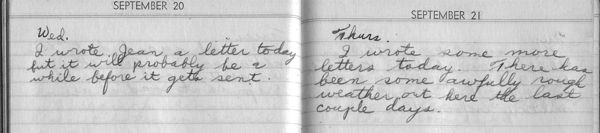 SEPTEMBER 20
Wed.
I wrote Jean a letter today
but it will probably be a
while before it gets sent.
SEPTEMBER 21
Thurs.
I wrote some more
letters today. There has
been some awfully rough
weather out here the last
couple days.